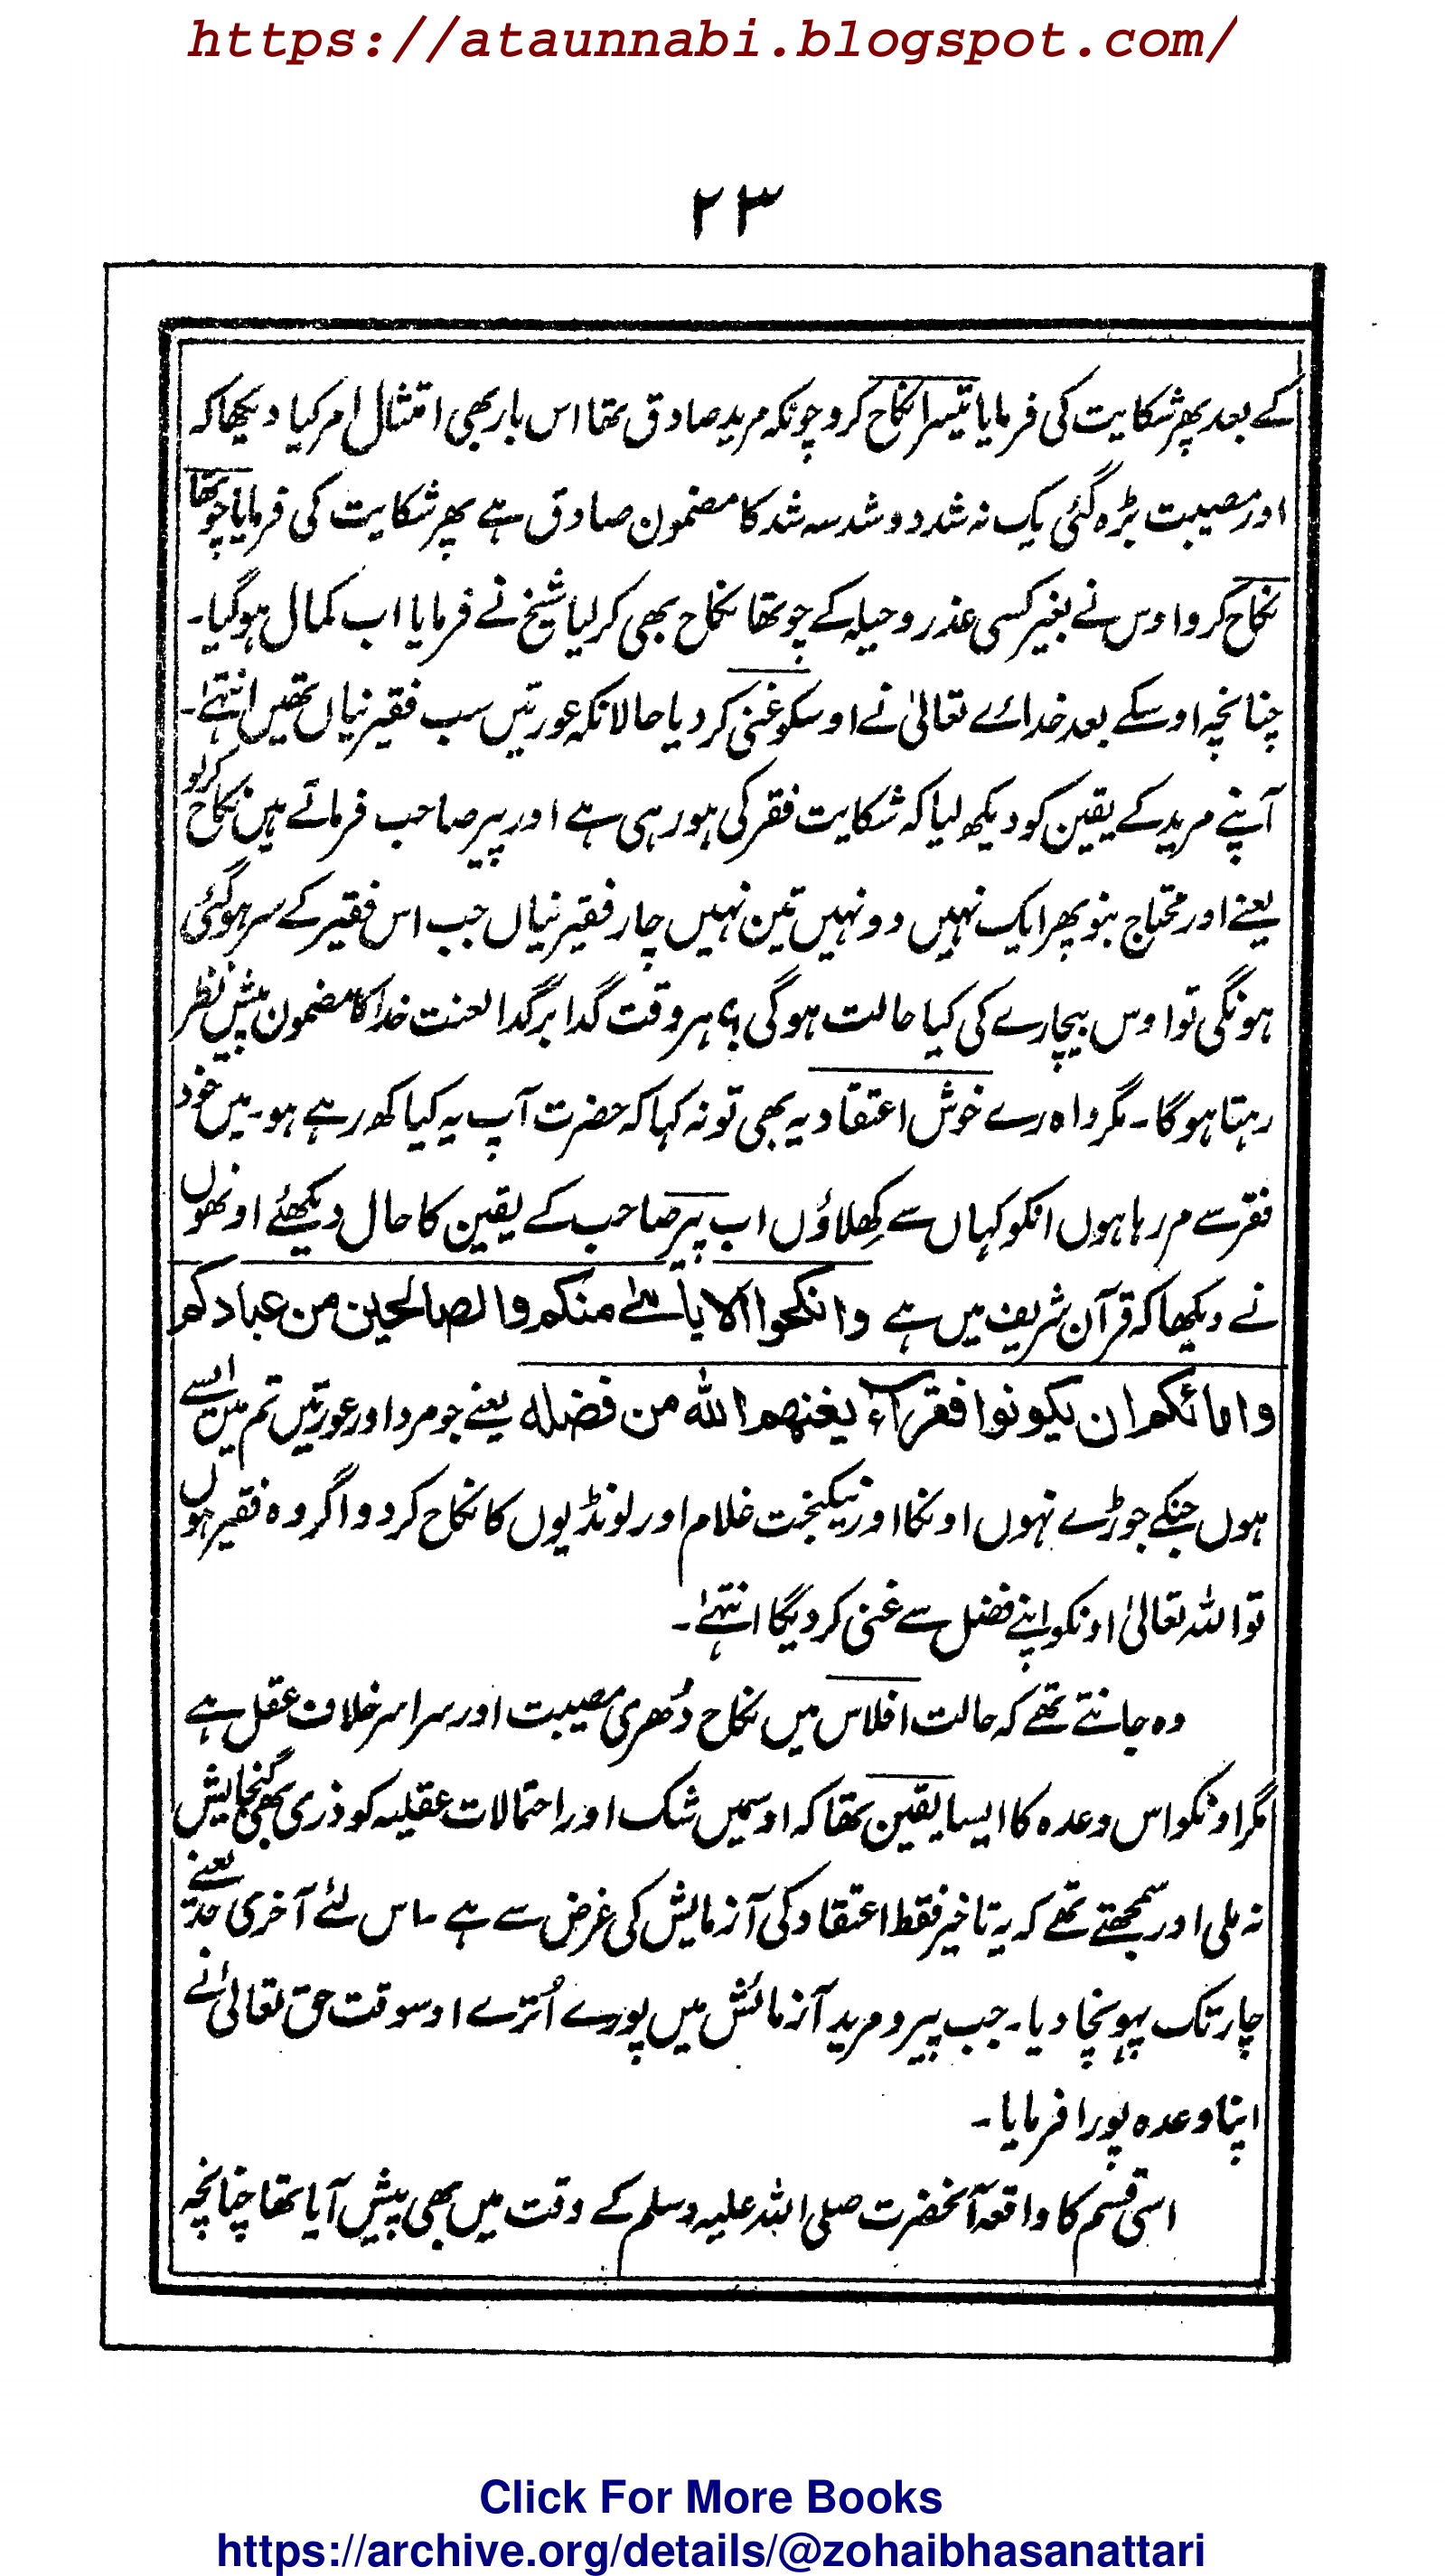 https://ataunnabi.blogspot.com/
۲۳
کے بعد پھر شکایت کی فرمایا تیسرا نکاح کرو چونکہ مرید صادق تھا اس بار بھی امتثال امر کیا دیکھا کہ
اور مصیبت بڑہ گئی یک نہ شد دو شد سہ شد کا مضمون صادق ہے پھر شکایت کی فرمایا چوتھا
نکاح کرو اوس نے بغیر کسی عذر و حیلہ کے چوتھا نکاح بھی کر لیا شیخ نے فرمایا اب کمال ہوگیا۔
چنانچہ اوسکے بعد خدائے تعالیٰ نے اوسکو غنی کر دیا حالانکہ عورتیں سب فقیرنیاں تھیں انتہےٰ۔
آپنے مرید کے یقین کو دیکھ لیا کہ شکایت فقر کی ہورہی ہے اور پیر صاحب فرماتے ہین نکاح کرلو
یعنے اور محتاج بنو پھر ایک نہیں دو نہیں تین نہیں چار فقیرنیاں جب اس فقیر کے سر ہوگئی
ہونگی تو اوس بیچارے کی کیا حالت ہوگی؟ ہر وقت گدا بر گدا لعنت خدا کا مضمون پیش نظر
رہتا ہوگا۔ مگر واہ رے خوش اعتقاد یہ بھی تو نہ کہا کہ حضرت آپ یہ کیا کھ رہے ہو۔ میں خود
فقر سے مر رہا ہوں انکو کہاں سے کِھلاؤں اب پیر صاحب کے یقین کا حال دیکھئے اونھوں
نے دیکھا کہ قرآن شریف میں ہے وانکحوا الایامےٰ منکم والصالحین من عبادکم
وامائکم ان یکونوا فقراء یغنہم اللہ من فضلہ یعنے جو مرد اور عورتیں تم میں ایسے
ہوں جنکے جوڑے نہوں اونکا اور نیکبخت غلام اور لونڈیوں کا نکاح کر دو اگر وہ فقیر ہوں
تو اللہ تعالیٰ اونکو اپنے فضل سے غنی کر دیگا انتہےٰ۔
وہ جانتے تھے کہ حالت افلاس میں نکاح دُھری مصیبت اور سراسر خلاف عقل ہے
مگر اونکو اس وعدہ کا ایسا یقین تھا کہ اوسمیں شک اور احتمالات عقلیہ کو ذری بھی گنجایش
نہ ملی اور سمجھتے تھے کہ یہ تاخیر فقط اعتقاد کی آزمایش کی غرض سے ہے۔ اس لئے آخری حد یعنے
چار تک پہونچا دیا۔ جب پیر و مرید آزمائش میں پورے اُترے اوسوقت حق تعالیٰ نے
اپنا وعدہ پورا فرمایا۔
اسی قسم کا واقعہ آنحضرت صلی اللہ علیہ وسلم کے وقت میں بھی پیش آیا تھا چنانچہ
Click For More Books
https://archive.org/details/@zohaibhasanattari